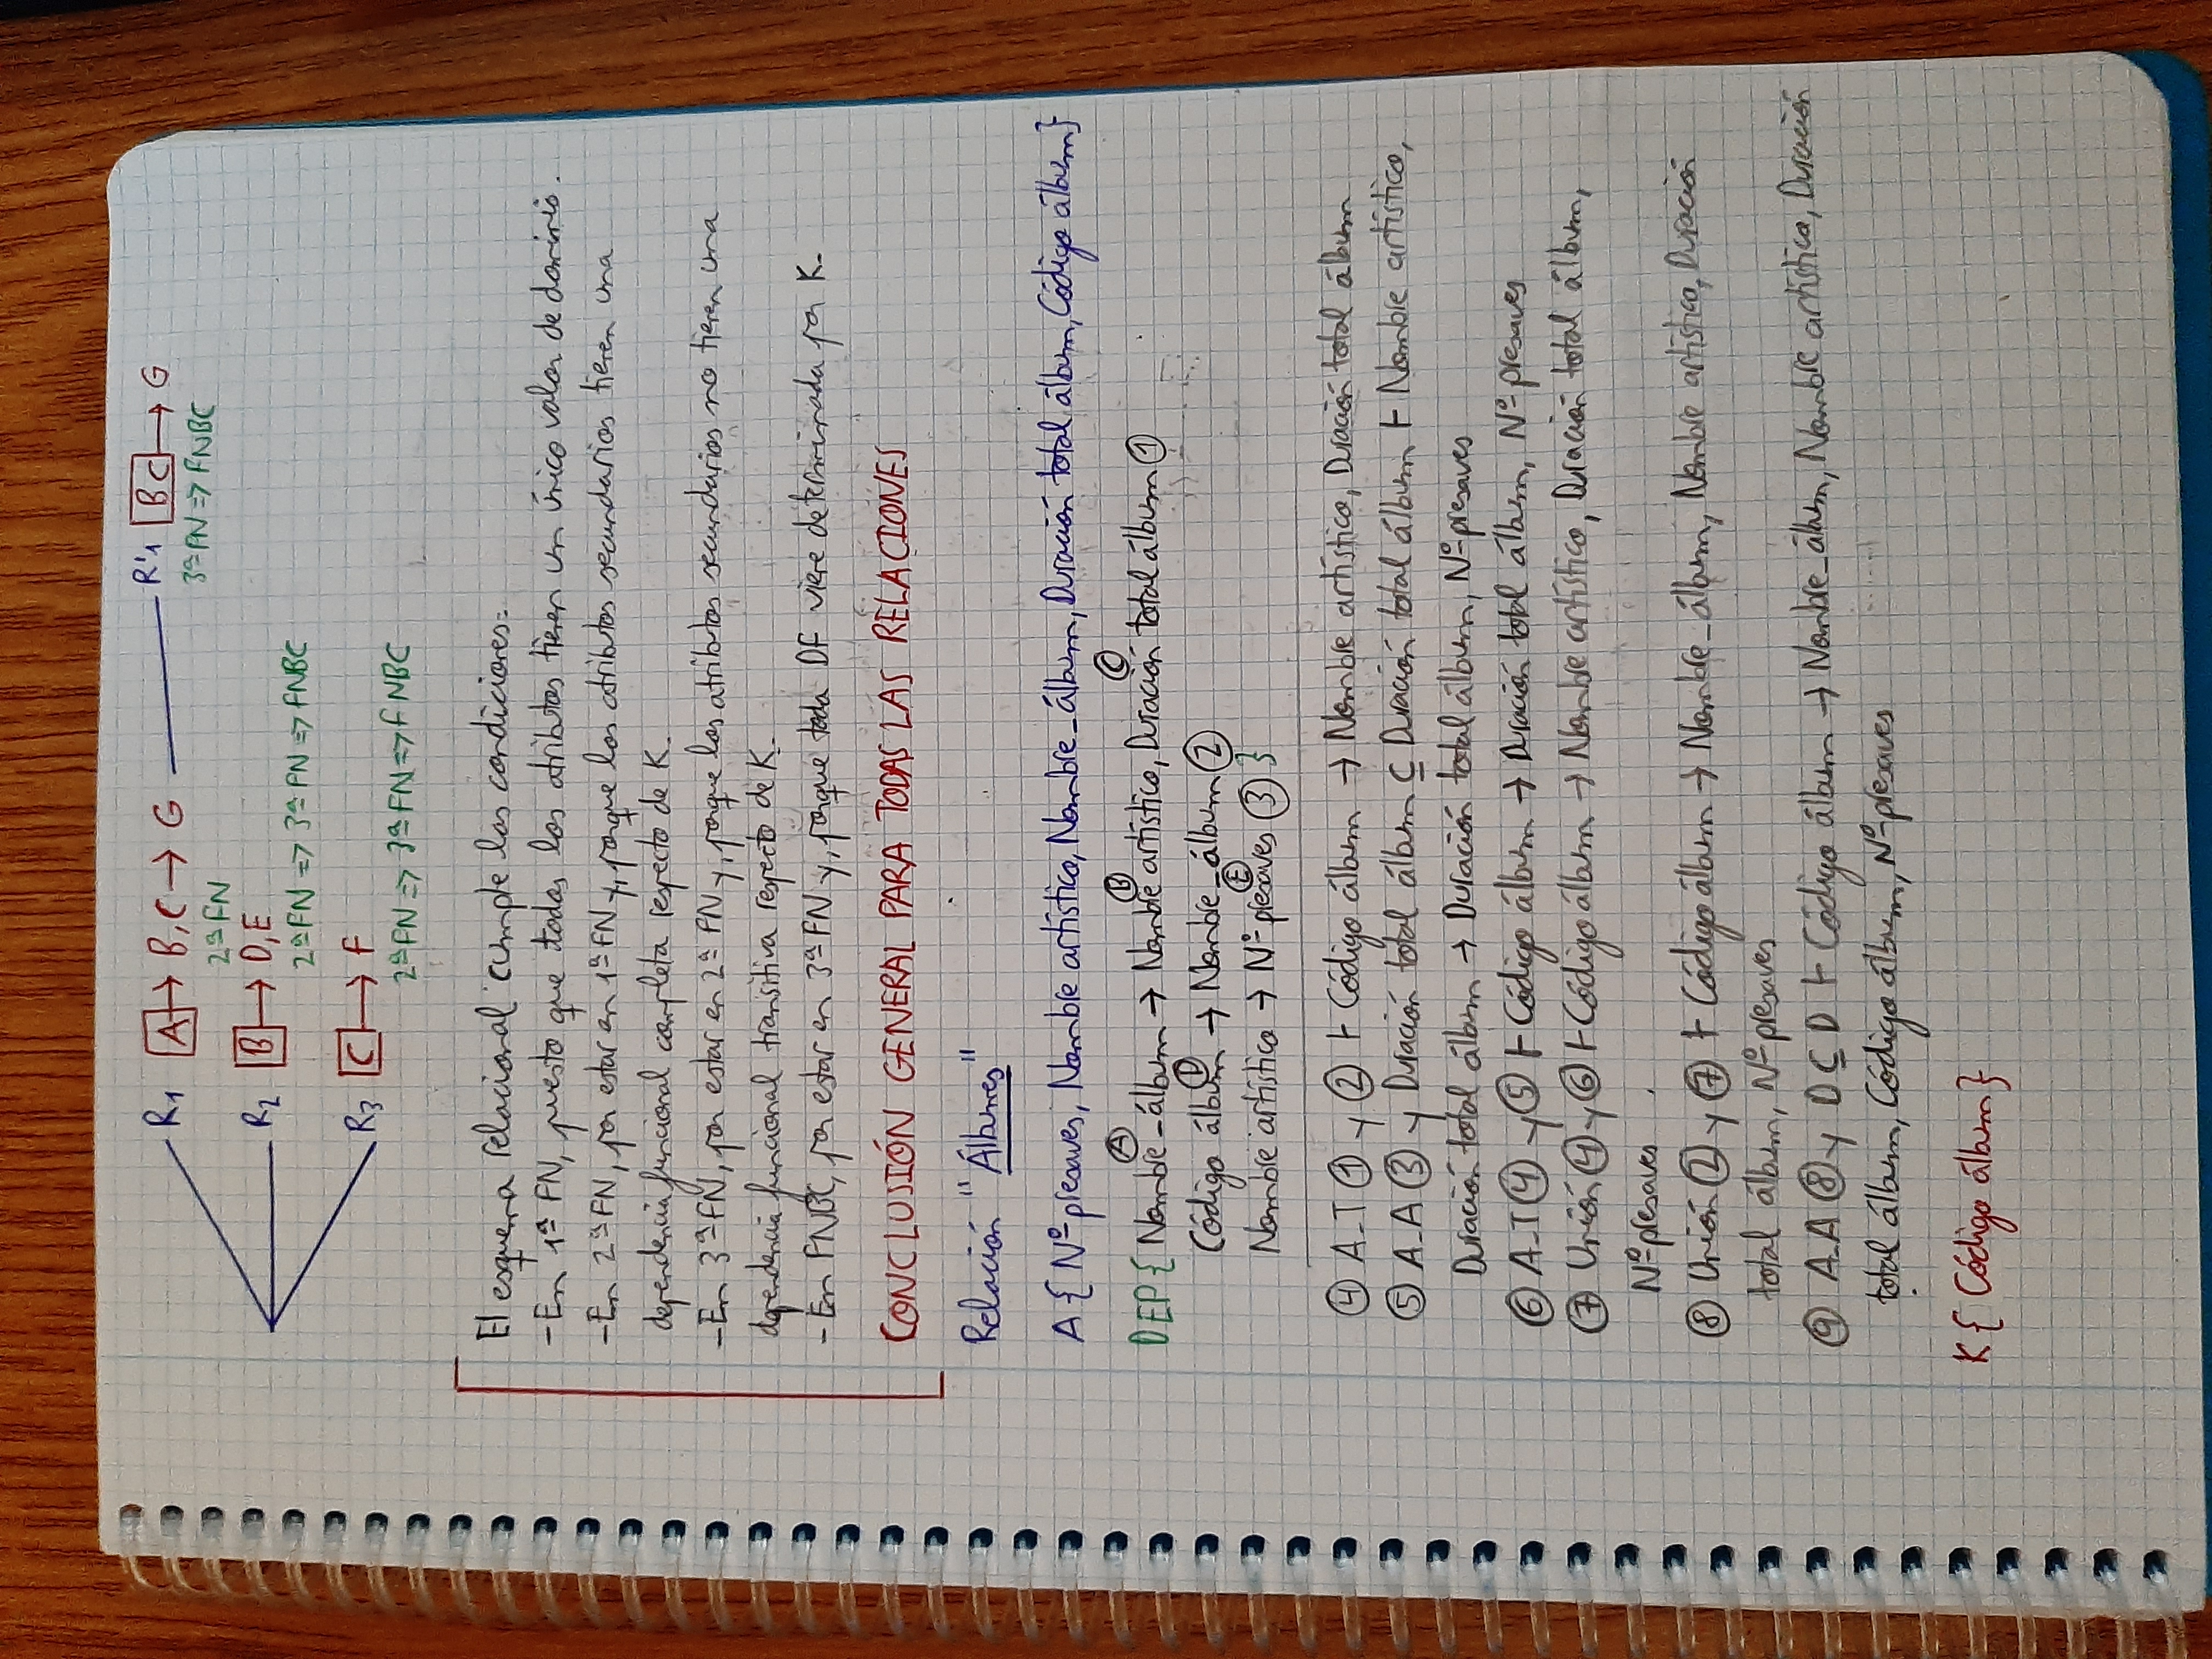 R1 A → B, C → G R'1 BC → G
2ª FN 3ª FN => FNBC
R2 B → D, E
2ª FN => 3ª FN => FNBC
R3 C → F
2ª FN => 3ª FN => FNBC
El esquema relacional cumple las condiciones:
- En 1ª FN, puesto que todos los atributos tienen un único valor de dominio.
- En 2ª FN, por estar en 1ª FN y, porque los atributos secundarios tienen una
dependencia funcional completa respecto de K.
- En 3ª FN, por estar en 2ª FN y, porque los atributos secundarios no tienen una
dependencia funcional transitiva respecto de K.
- En FNBC, por estar en 3ª FN y, porque toda DF viene determinada por K.
CONCLUSIÓN GENERAL PARA TODAS LAS RELACIONES
Relación "Álbumes"
A { Nº presaves, Nombre artístico, Nombre_álbum, Duración total álbum, Código álbum}
Ⓐ Ⓑ Ⓒ
DEP { Nombre_álbum → Nombre artístico, Duración total álbum ①
Ⓓ
Código álbum → Nombre_álbum ②
Ⓔ
Nombre artístico → Nº presaves ③ }
④ A.T ① y ② ⊢ Código álbum → Nombre artístico, Duración total álbum
⑤ A.A ③ y Duración total álbum ⊆ Duración total álbum ⊢ Nombre artístico,
Duración total álbum → Duración total álbum, Nº presaves
⑥ A.T ④ y ⑤ ⊢ Código álbum → Duración total álbum, Nº presaves
⑦ Unión ④ y ⑥ ⊢ Código álbum → Nombre artístico, Duración total álbum,
Nº presaves
⑧ Unión ② y ⑦ ⊢ Código álbum → Nombre_álbum, Nombre artístico, Duración
total álbum, Nº presaves
⑨ A.A ⑧ y D ⊆ D ⊢ Código álbum → Nombre_álbum, Nombre artístico, Duración
total álbum, Código álbum, Nº presaves
K { Código álbum }